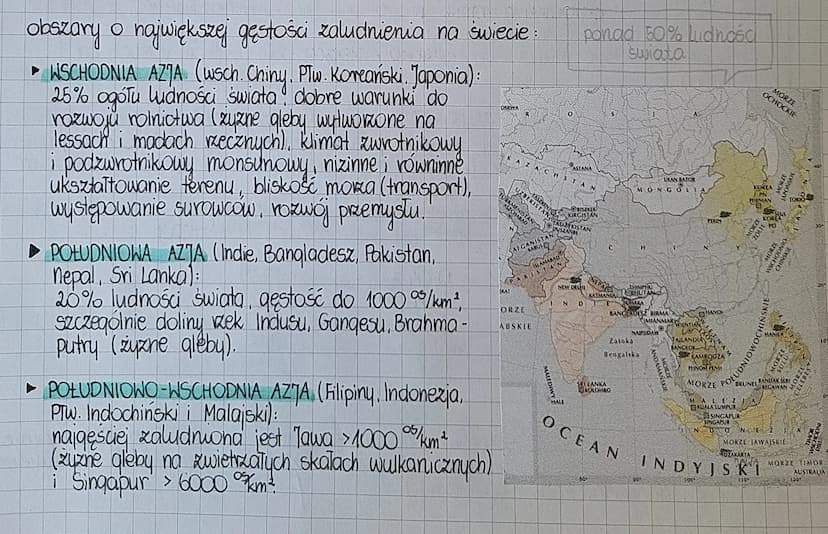 obszary o największej gęstości zaludnienia na świecie:
ponad 50% ludności
świata
▸ WSCHODNIA AZJA (wsch. Chiny, Płw. Koreański, Japonia):
25% ogółu ludności świata, dobre warunki do
rozwoju rolnictwa (żyzne gleby wytworzone na
lessach i madach rzecznych), klimat zwrotnikowy
i podzwrotnikowy monsunowy, nizinne i równinne
ukształtowanie terenu, bliskość morza (transport),
występowanie surowców, rozwój przemysłu.
▸ POŁUDNIOWA AZJA (Indie, Bangladesz, Pakistan,
Nepal, Sri Lanka):
20% ludności świata, gęstość do 1000 os/km²,
szczególnie doliny rzek Indusu, Gangesu, Brahma-
putry (żyzne gleby).
▸ POŁUDNIOWO-WSCHODNIA AZJA (Filipiny, Indonezja,
Płw. Indochiński i Malajski):
najgęściej zaludniona jest Jawa >1000 os/km²
(żyzne gleby na zwietrzałych skałach wulkanicznych)
i Singapur > 6000 os/km².
MORZE
OCHOCKIE
R O S J A
KAZACHSTAN
ASTANA
UŁAN BATOR
MONGOLIA
KOREA
PN
PEKIN
TOKIO
KIRGISTAN
C H I N Y
PAKISTAN
NEW DELHI
INDIE
KATMANDU
BHUTAN
BANGLADESZ
BIRMA
HANOI
TAJLANDIA
BANGKOK
KAMBODŻA
PHNOM PENH
Zatoka
Bengalska
MORZE POŁUDNIOWOCHIŃSKIE
MALEDIWY
MALE
SRI LANKA
KOLOMBO
BRUNEI
MALEZJA
KUALA LUMPUR
SINGAPUR
SINGAPUR
INDONEZJA
MORZE JAWAJSKIE
DŻAKARTA
MORZE TIMOR
AUSTRALIA
OCEAN INDYJSKI